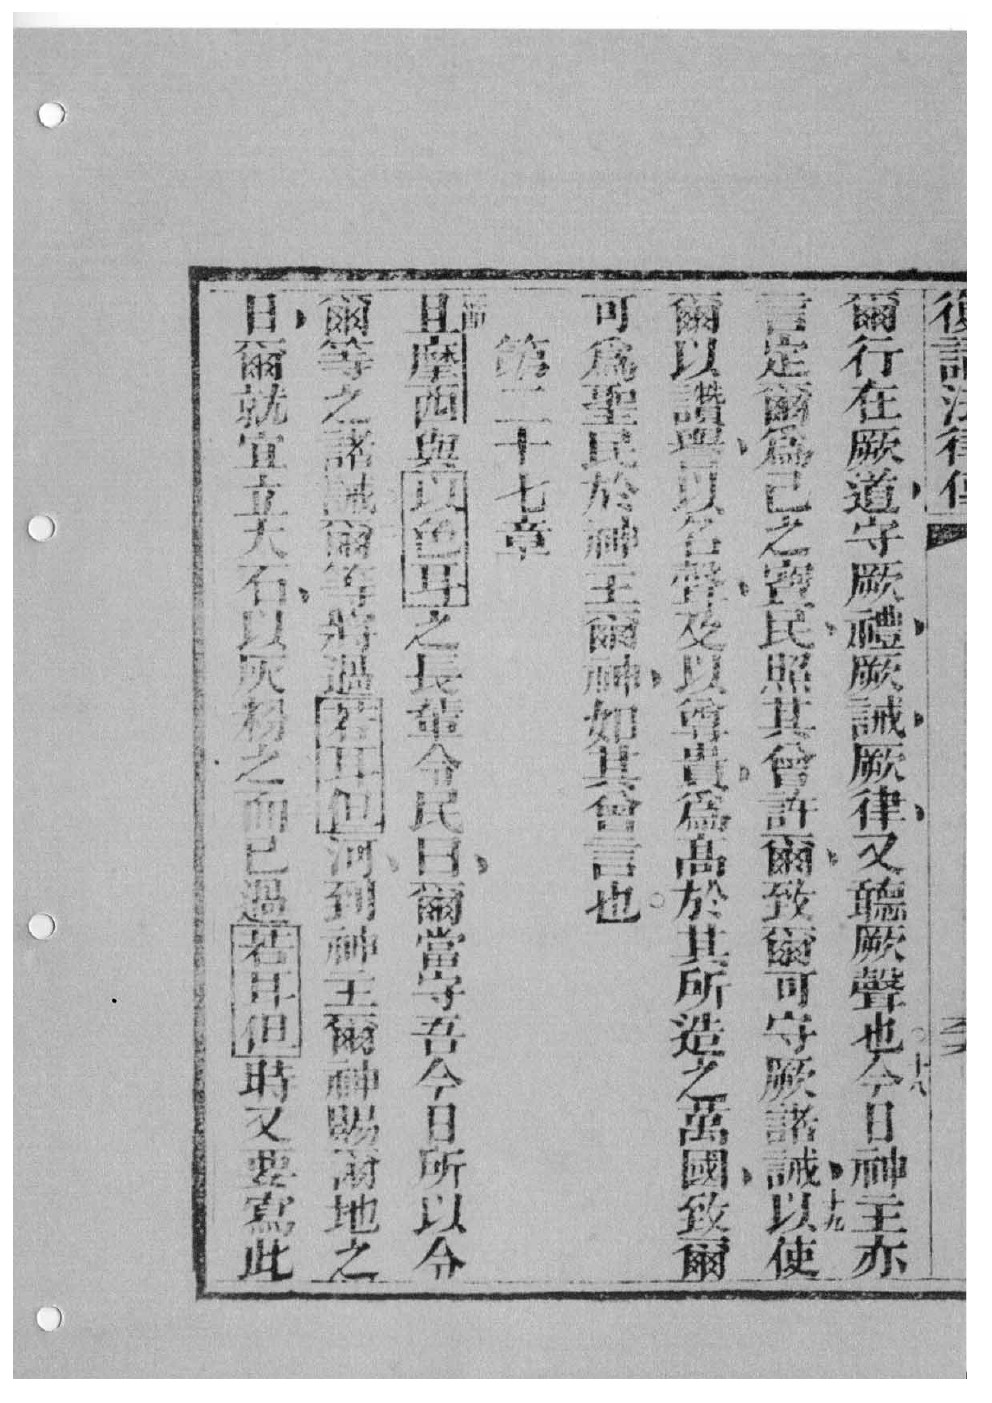 復講法律傳
爾行在厥道、守厥禮、厥誡、厥律、又聽厥聲也。十八今日神主亦
言定爾爲己之寶民、照其曾許爾、致爾可守厥諸誡、十九以使
爾以讚與、以名聲、及以尊貴、爲高於其所造之萬國、致爾
可爲聖民於神主爾神、如其曾言也。
第二十七章
且摩西與以色耳之長輩令民曰、爾當守吾今日所以令
爾等之諸誡爾等將過若耳但河、到神主爾神賜爾地之
日、爾就宜立大石、以灰粉之而已過若耳但時又要寫此